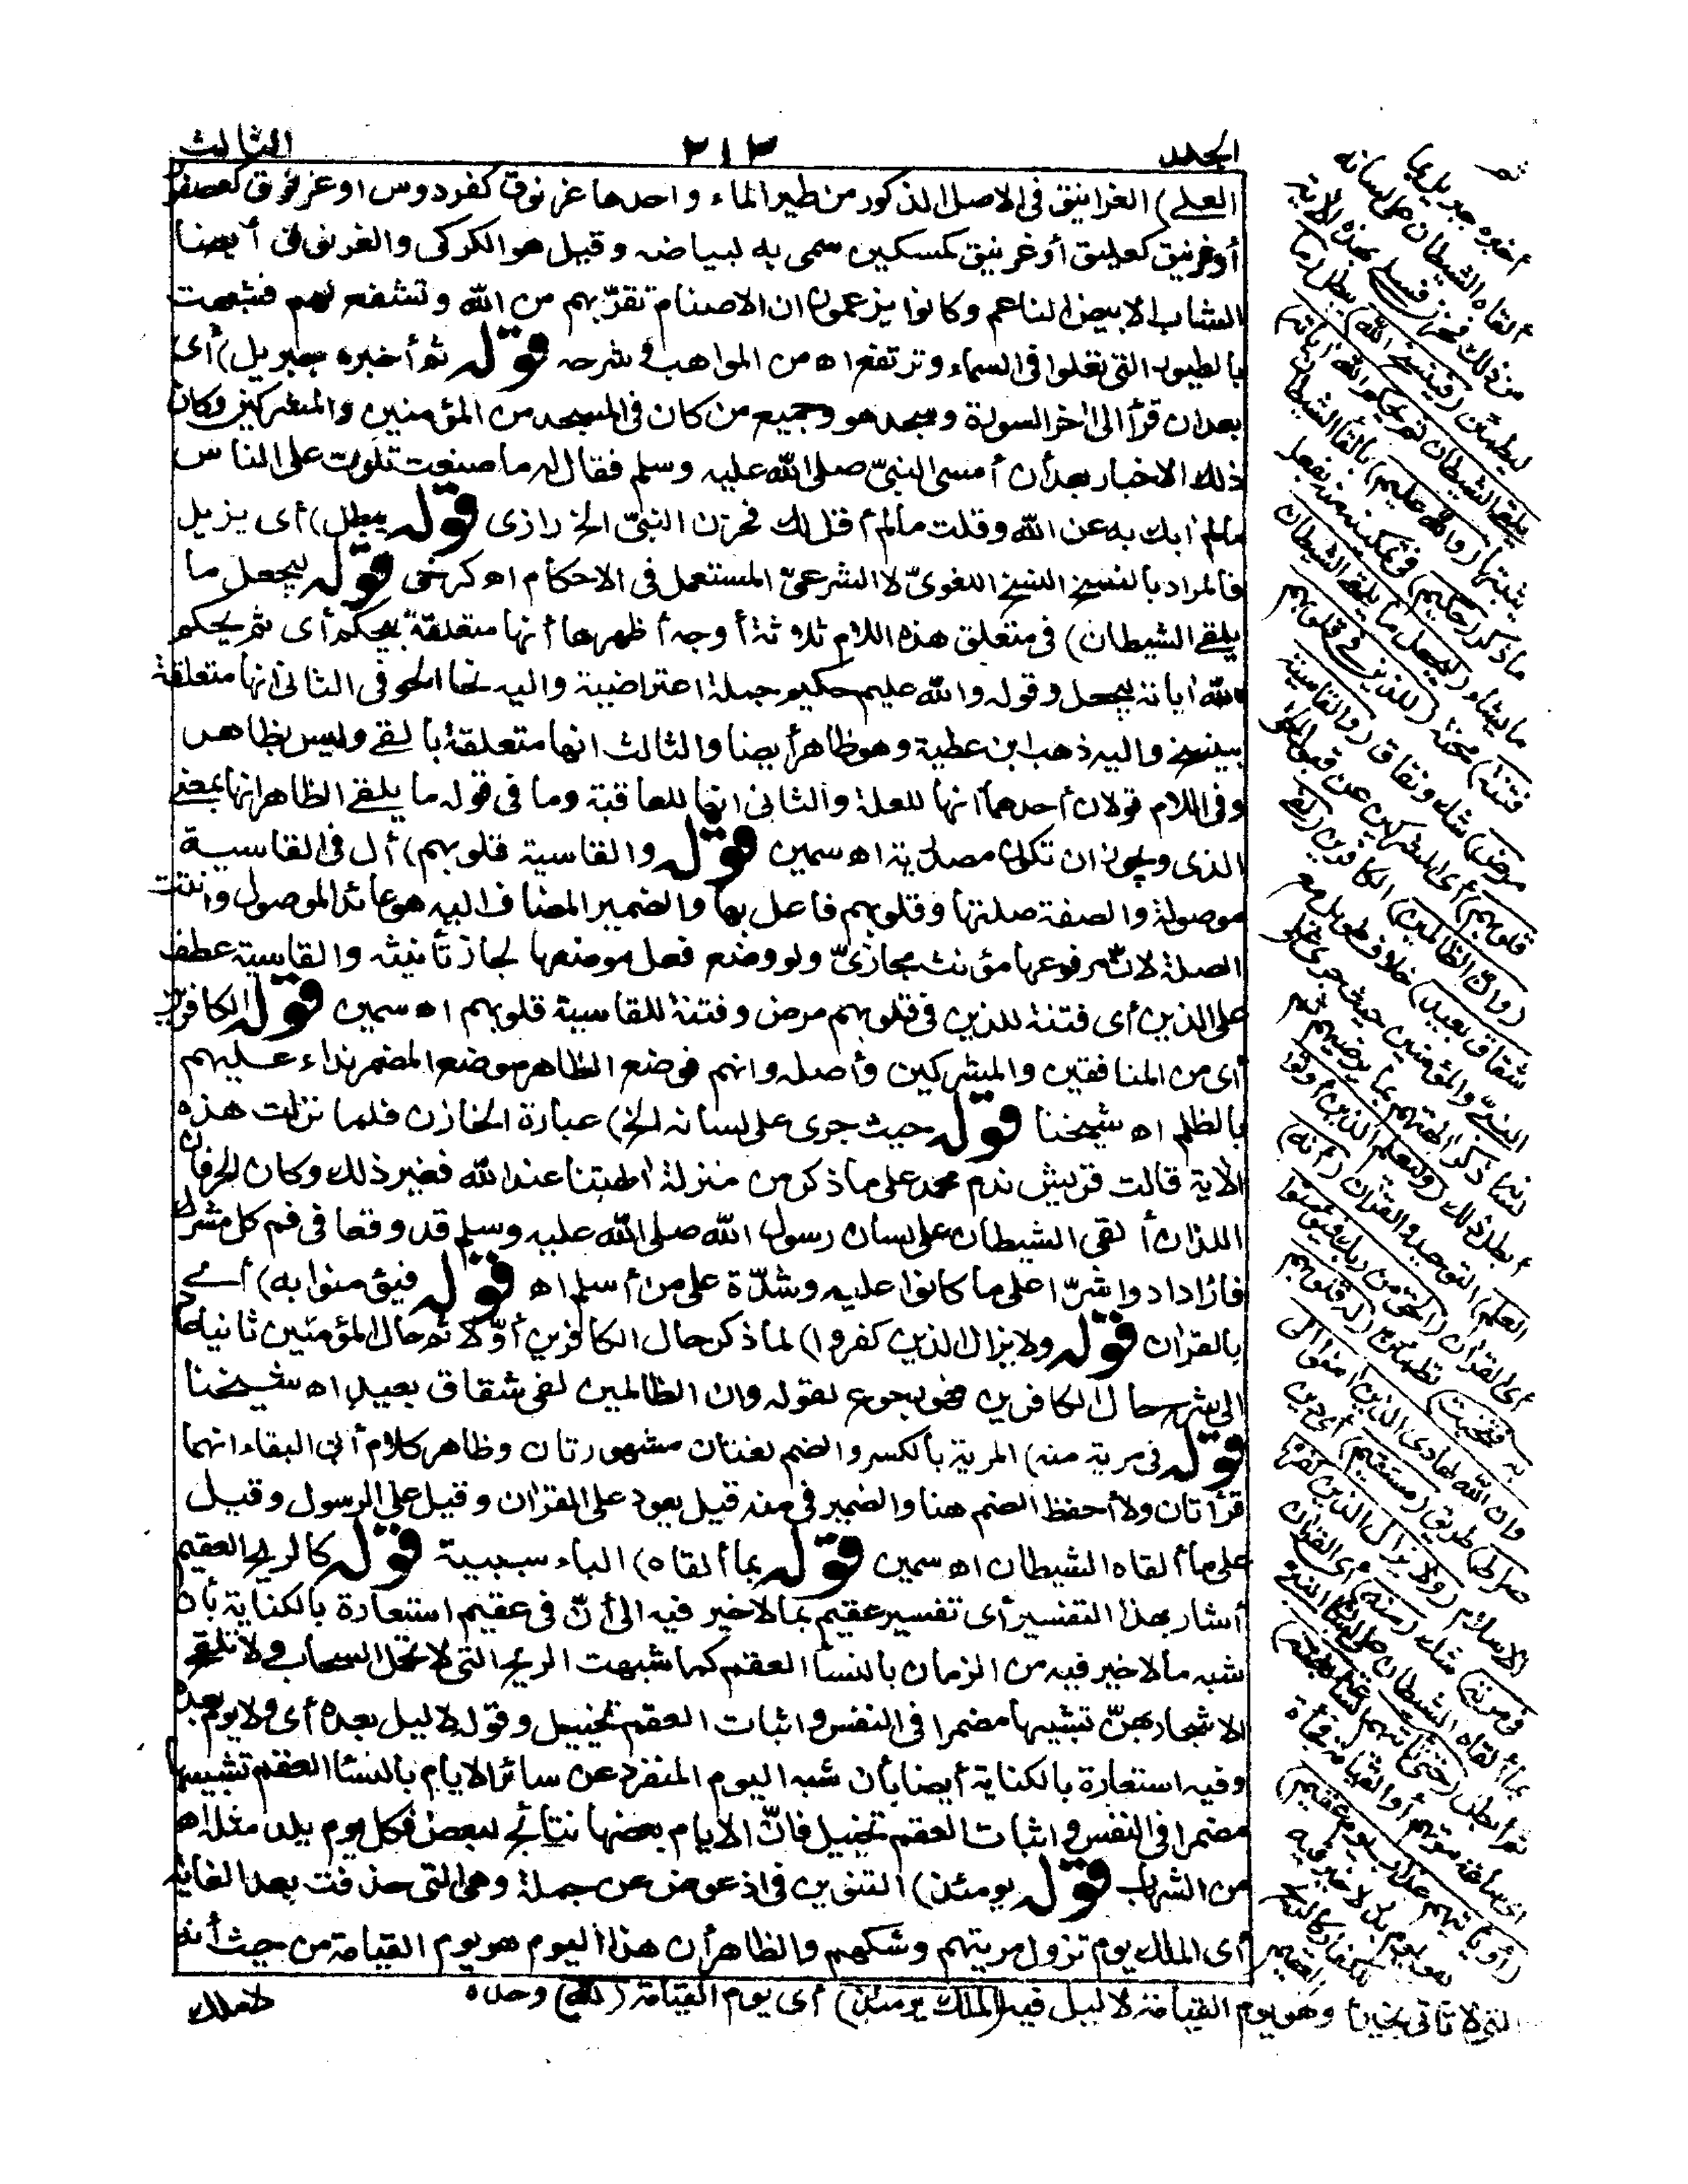 الجلد ٣١٣ الثالث
العلى) الغرانيق فى الاصل الذكور من طير الماء واحدها غرنوق كفردوس او غرنوق كعصفور
أو غرنيق كعليق أو غرنيق كمسكين سمى به لبياضه وقيل هو الكركى والغرنوق أيضا
الشاب الابيض الناعم وكانوا يزعمون ان الاصنام تقربهم من الله وتشفع لهم فشبهت
بالطيور التى تعلوا فى السماء وترتفع اه من المواهب وشرحه قوله ثم أخبره جبريل) أى
بعد ان قرأ الى اخر السورة وسجد هو وجميع من كان فى المسجد من المؤمنين والمشركين وكان
ذلك الاخبار بعد أن أمسى النبىّ صلى الله عليه وسلم فقال له ما صنعت تلوت على الناس
مالم اٰتك به عن الله وقلت مالم أقل لك فحزن النبىّ الخ رازى قوله يبطل) أى يزيل
فالمراد بالنسخ النسخ اللغوىّ لا الشرعىّ المستعمل فى الاحكام اه كرخى قوله ليجعل ما
يلقى الشيطان) فى متعلق هذه اللام ثلاثة أوجه أظهرها أنها متعلقة بيحكم أى ثم يحكم
الله اٰياته ليجعل وقوله والله عليم حكيم جملة اعتراضية واليه نحا الحوفى الثانى انها متعلقة
بينسخ واليه ذهب ابن عطية وهو ظاهر أيضا والثالث انها متعلقة بألقى وليس بظاهر
وفى اللام قولان أحدهما انها للعلة والثانى انها للعاقبة وما فى قوله ما يلقى الظاهر انها بمعنى
الذى ويجوز ان تكون مصدرية اه سمين قوله والقاسية قلوبهم) أل فى القاسية
موصولة والصفة صلتها وقلوبهم فاعل بها والضمير المضاف اليه هو عائد الموصول وانثت
الصلة لان مرفوعها مؤنث مجازىّ ولو وضع فعل موضعها لجاز تأنيثه والقاسية عطف
على الذين أى فتنة للذين فى قلوبهم مرض وفتنة للقاسية قلوبهم اه سمين قوله الكافرين
أى من المنافقين والمشركين وأصله وانهم فوضع الظاهر موضع المضمر نداء عليهم
بالظلم اه شيخنا قوله حيث جرى على لسانه الخ) عبارة الخازن فلما نزلت هذه
الاٰية قالت قريش ندم محمد على ما ذكر من منزلة اٰلهتنا عند الله فغير ذلك وكان الحرفان
اللذان ألقى الشيطان على لسان رسول الله صلى الله عليه وسلم قد وقعا فى فم كل مشرك
فازدادوا شرّا على ما كانوا عليه وشدّة على من أسلم اه قوله فيؤمنوا به) أى
بالقراٰن قوله ولا يزال الذين كفروا) لما ذكر حال الكافرين أوّلا ثم حال المؤمنين ثانيا عاد
الى شرح حال الكافرين فهو رجوع لقوله وان الظالمين لفى شقاق بعيد اه شيخنا
قوله فى مرية منه) المرية بالكسر والضم لغتان مشهورتان وظاهر كلام أبى البقاء انهما
قرأتان ولا أحفظ الضم هنا والضمير فى منه قيل يعود على القراٰن وقيل على الرسول وقيل
على ما ألقاه الشيطان اه سمين قوله بما ألقاه) الباء سببية قوله كالريح العقيم
أشار بهذا التفسير أى تفسير عقيم بما لا خير فيه الى أنّ فى عقيم استعارة بالكناية بأن
شبه ما لا خير فيه من الزمان بالنساء العقم كما شبهت الريح التى لا تحمل السحاب ولا تلقح
الاشجار بهنّ تشبيها مضمرا فى النفس واثبات العقم تخييل وقوله لا ليل بعده أى ولا يوم بعده
وفيه استعارة بالكناية أيضا بأن شبه اليوم المنفرد عن سائر الايام بالنساء العقم تشبيها
مضمرا فى النفس واثبات العقم تخييل فانّ الايام بعضها نتائج لبعض فكل يوم يلد مثله اه
من الشهاب قوله يومئذ) التنوين فى اذ عوض عن جملة وهى التى حذفت بعد الغاية
أى الملك يوم تزول مريتهم وشكهم والظاهر أن هذا اليوم هو يوم القيامة من حيث أنه
لا ملك
ثم
أخبره جبريل بما
ألقاه الشيطان على لسانه
من ذلك فحزن فسلى بهذه الاٰية
ليطمئن (فينسخ الله) يبطل (ما
يلقى الشيطان ثم يحكم الله اٰياته)
يثبتها (والله عليم) بالقاء الشيطان
ما ذكر (حكيم) فى تمكينه منه يفعل
ما يشاء (ليجعل ما يلقى الشيطان
فتنة) محنة (للذين فى قلوبهم
مرض) شك ونفاق (والقاسية
قلوبهم) أى المشركين عن قبول الحق
(وان الظالمين) الكافرين (لفى
شقاق بعيد) خلاف طويل مع
النبىّ والمؤمنين حيث جرى على
لسانه ذكر اٰلهتهم بما يرضيهم ثم
أبطل ذلك (وليعلم الذين أوتوا
العلم) التوحيد والقراٰن (أنه)
أى القراٰن (الحق من ربك فيؤمنوا
به فتخبت) تطمئن (له قلوبهم
وان الله لهاد الذين اٰمنوا الى
صراط) طريق (مستقيم) أى دين
الاسلام (ولا يزال الذين كفروا
فى مرية) شك (منه) أى القراٰن
بما ألقاه الشيطان على لسان النبى
ثم أبطل (حتى تأتيهم الساعة بغتة)
أى ساعة موتهم أو القيامة فجأة
(أو يأتيهم عذاب يوم عقيم)
هو يوم بدر لا خير فيه
للكفار كالريح
العقيم
التى لا تأتى بخير أو هو يوم القيامة لا ليل فيه (الملك يومئذ) أى يوم القيامة (لله) وحده